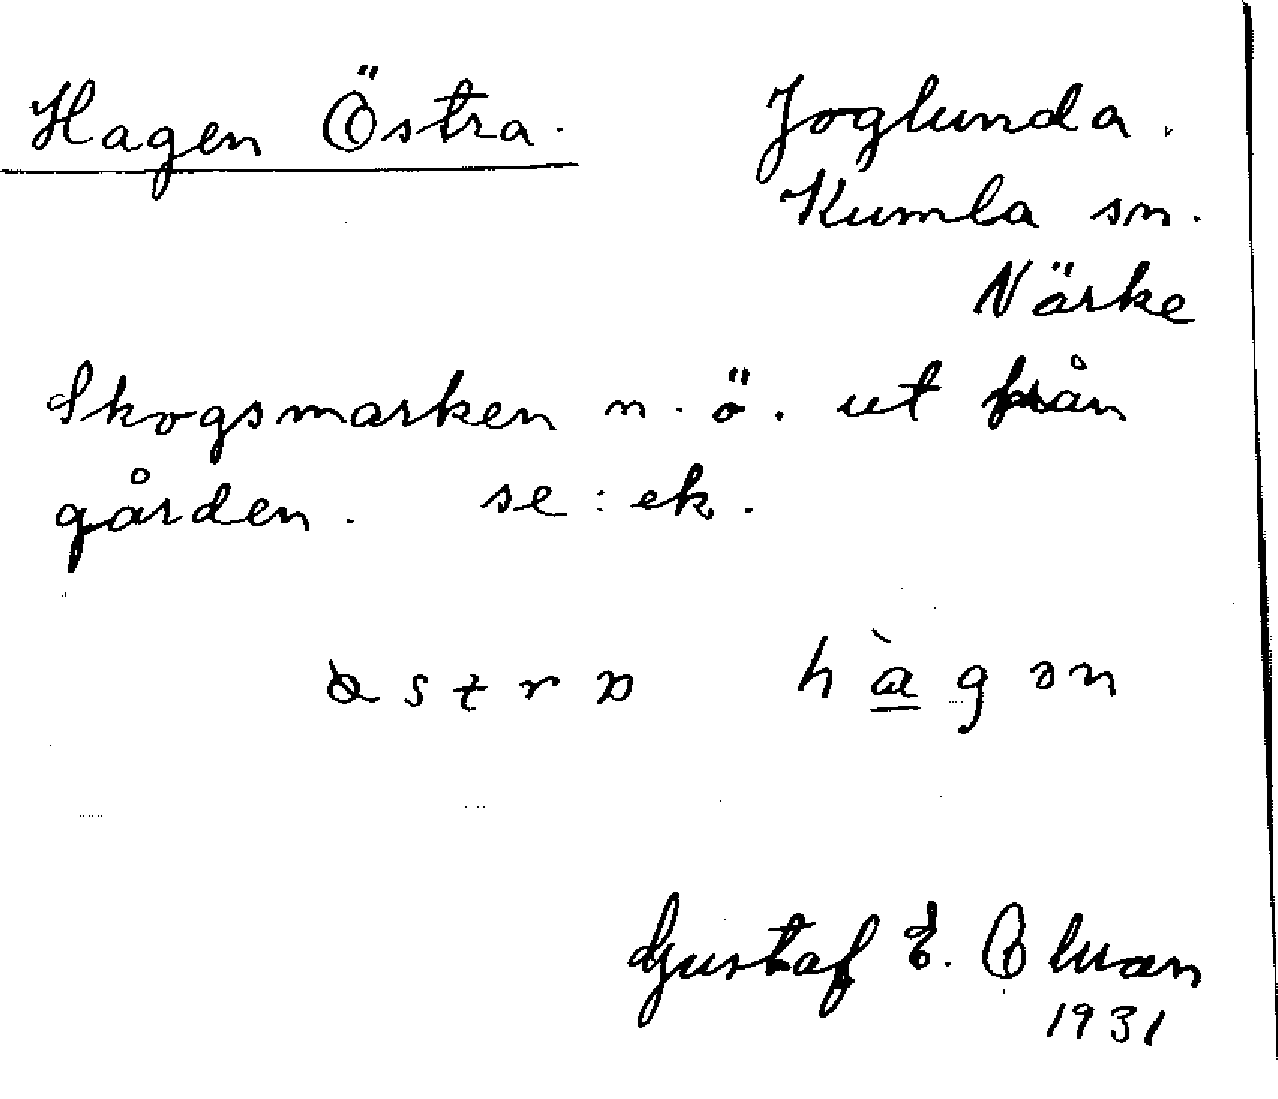 Hagen Östra. Joglunda.
Kumla sn.
Närke
Skogsmarken n. ö. ut från
gården. se: ek.
hàgən
Gustaf E.
1931